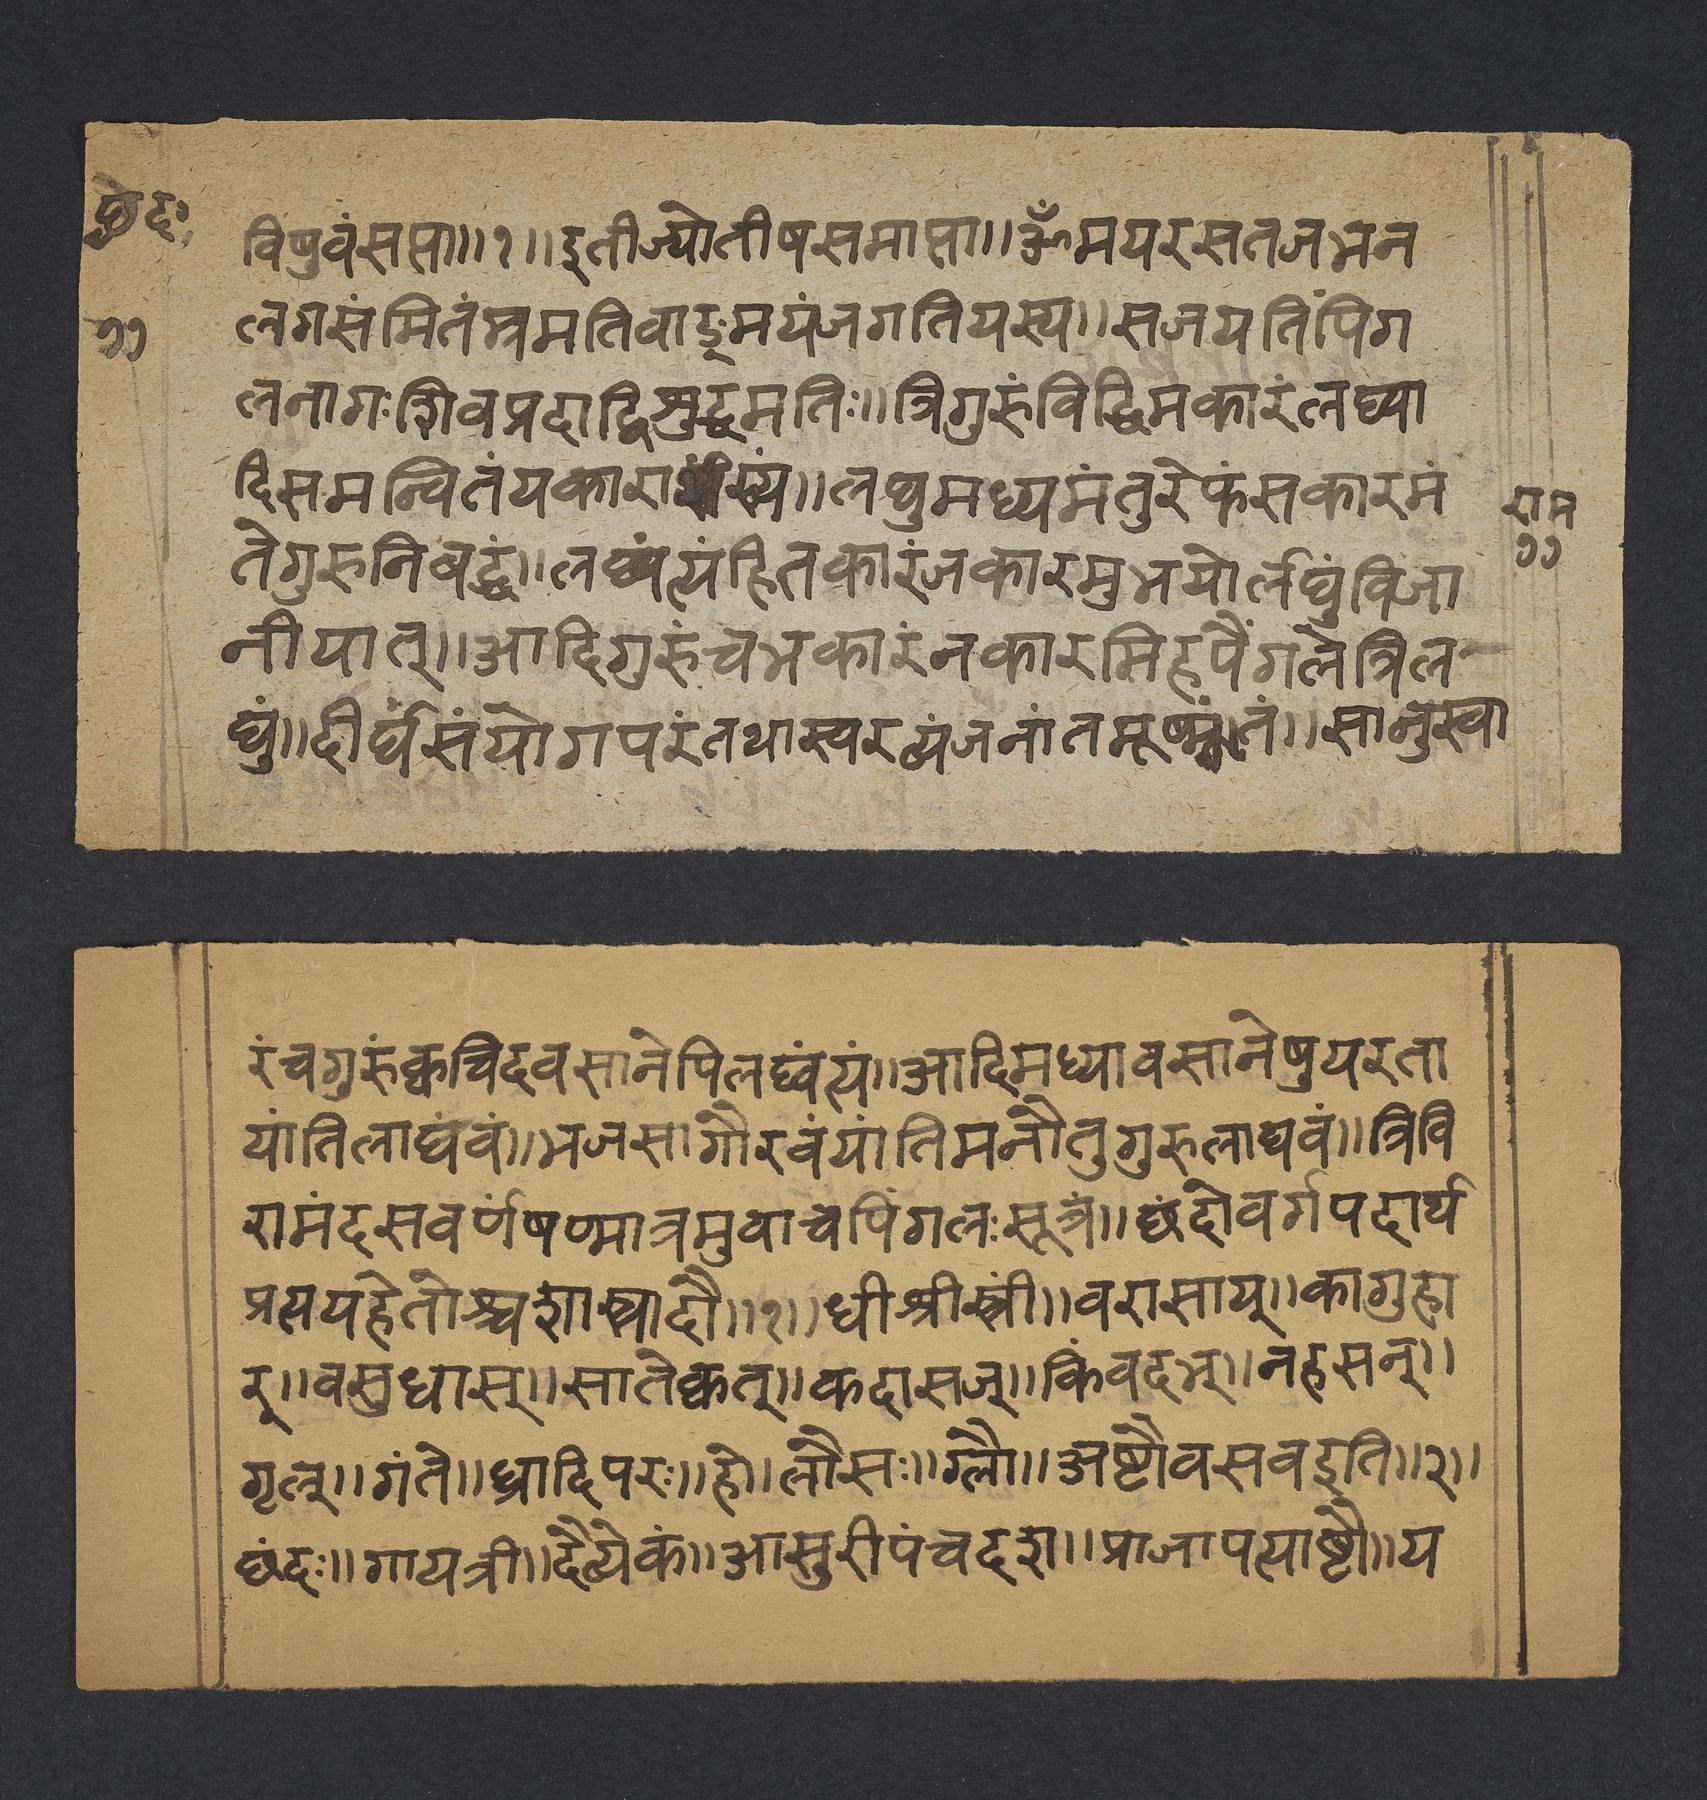 छंदः
विषुवंसप्तमा॥१॥इतीज्योतीषसमाप्ता॥ॐमयरसतजभन
११
लगसंमितंभ्रमतिवाङ्मयंजगतियस्य॥सजयतिंपिग
लनागःशिवप्रदाद्विशुद्धमतिः॥त्रिगुरुंविद्धिमकारंलघ्वा
दिसमन्वितंयकारा॥लघुमध्यमंतुरेफंसकारमं
राम
११
तेगुरुनिबद्धं॥लघ्वंत्यंहितकारंजकारमुभयोर्लघुंविजा
नीयात्॥आदिगुरुंचभकारंनकारमिहपैंगलेत्रिल
घुं॥दीर्घंसंयोगपरंतथास्वरव्यंजनांतमूष्मांतं॥सानुस्वा
रंचगुरुंक्वचिदवसानेपिलघ्वंत्यं॥आदिमध्यावसानेषुयरता
यांतिलाघंवं॥भजसागौरवंयांतिमनौतुगुरुलाघवं॥त्रिवि
रामंदसवर्णंषण्मात्रमुवाचपिंगलःसूत्रं॥छंदोवर्गपदार्थ
प्रत्ययहेतोश्चशास्त्रादौ॥१॥धीश्रीस्त्रीं॥वरासाय्॥कागुहा
र्॥वसुधास्॥सातेक्वत्॥कदासज्॥किंवदभ्॥नहसन्॥
गृल्॥गंते॥ध्रादिपरः॥हे॥लौसः॥ग्लौ॥अष्टौवसवइति॥२॥
छंदः॥गायत्री॥दैव्येकं॥आसुरीपंचदश॥प्राजापत्याष्टौ॥य